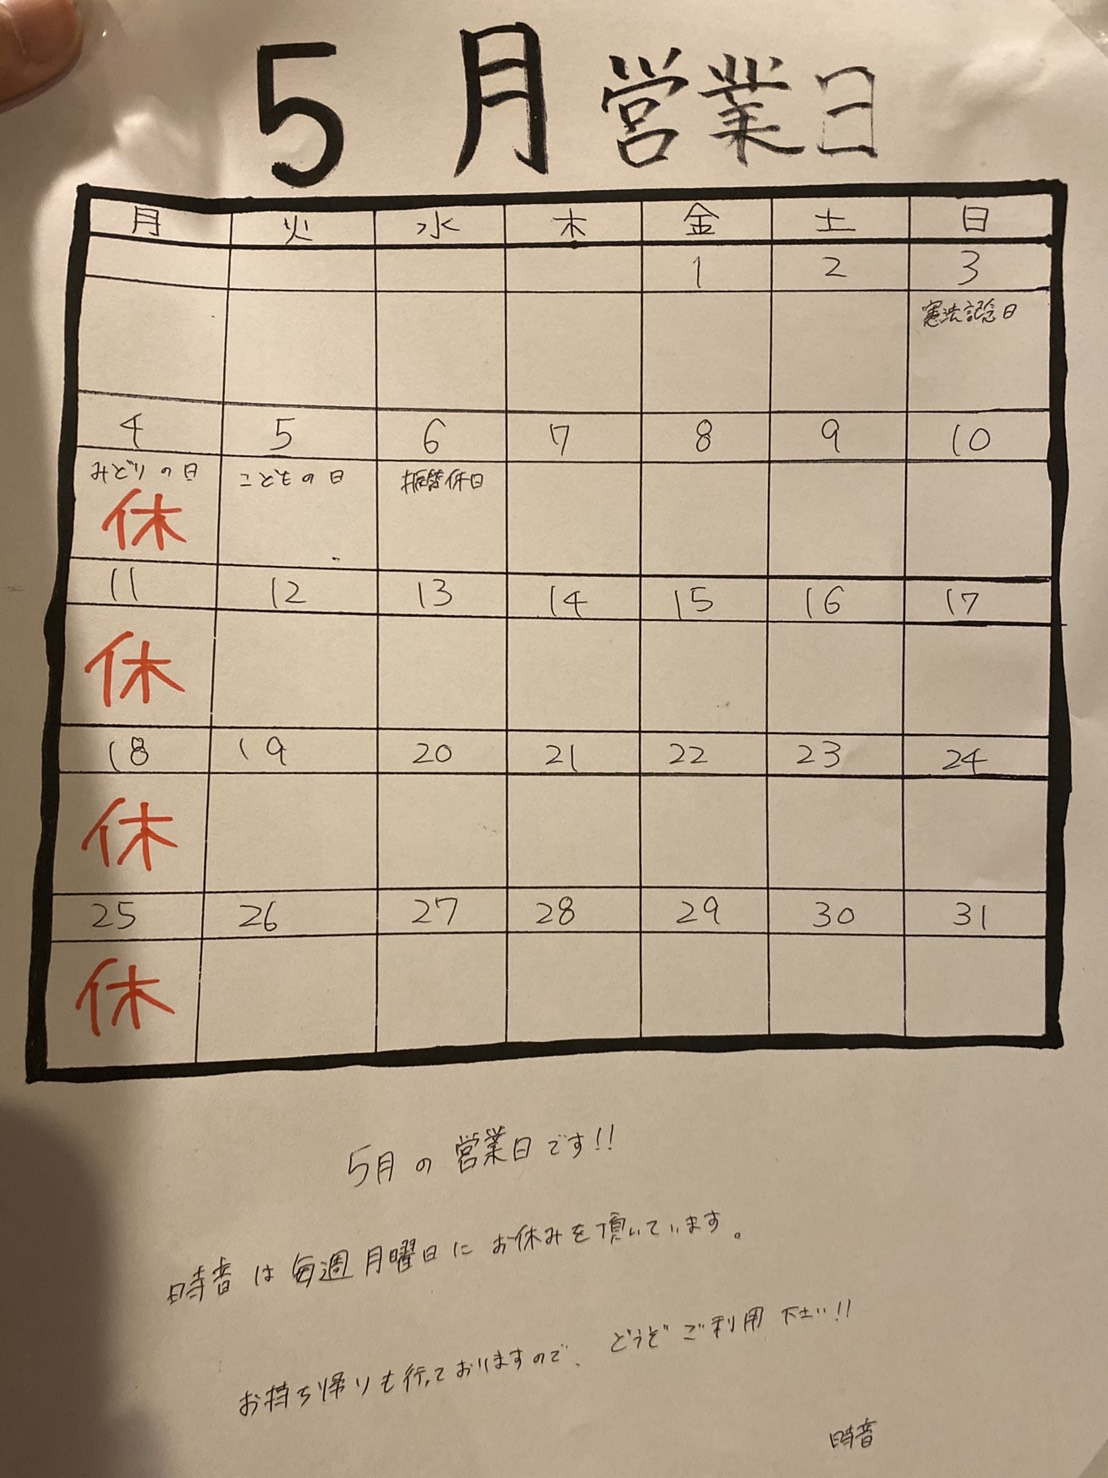 5月営業日
月 火 水 木 金 土 日
1 2 3
憲法記念日
4 5 6 7 8 9 10
みどりの日 こどもの日 振替休日
休
11 12 13 14 15 16 17
休
18 19 20 21 22 23 24
休
25 26 27 28 29 30 31
休
5月の営業日です!!
時音は毎週月曜日にお休みを頂いています。
お持ち帰りも行っておりますので、どうぞご利用下さい!!
時音